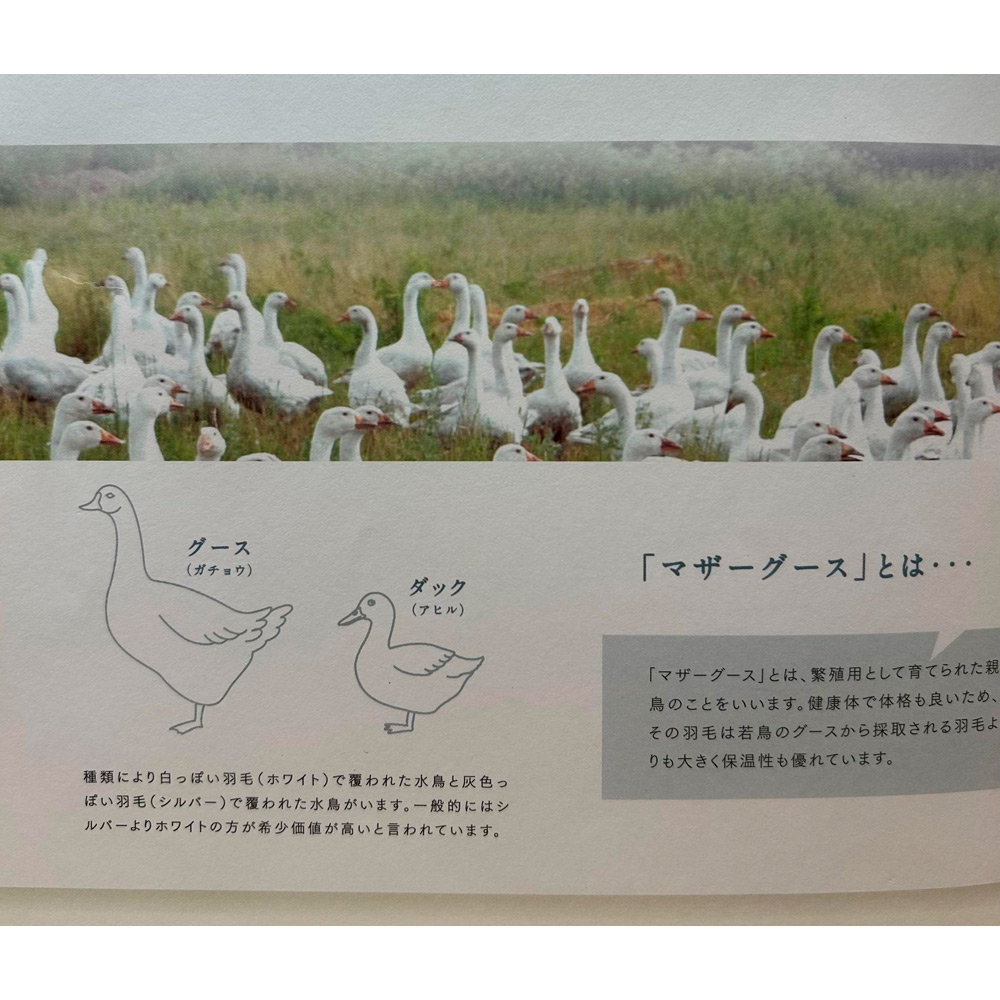 グース
（ガチョウ）
ダック
（アヒル）
種類により白っぽい羽毛（ホワイト）で覆われた水鳥と灰色っ
ぽい羽毛（シルバー）で覆われた水鳥がいます。一般的にはシ
ルバーよりホワイトの方が希少価値が高いと言われています。
「マザーグース」とは・・・
「マザーグース」とは、繁殖用として育てられた親
鳥のことをいいます。健康体で体格も良いため、
その羽毛は若鳥のグースから採取される羽毛よ
りも大きく保温性も優れています。